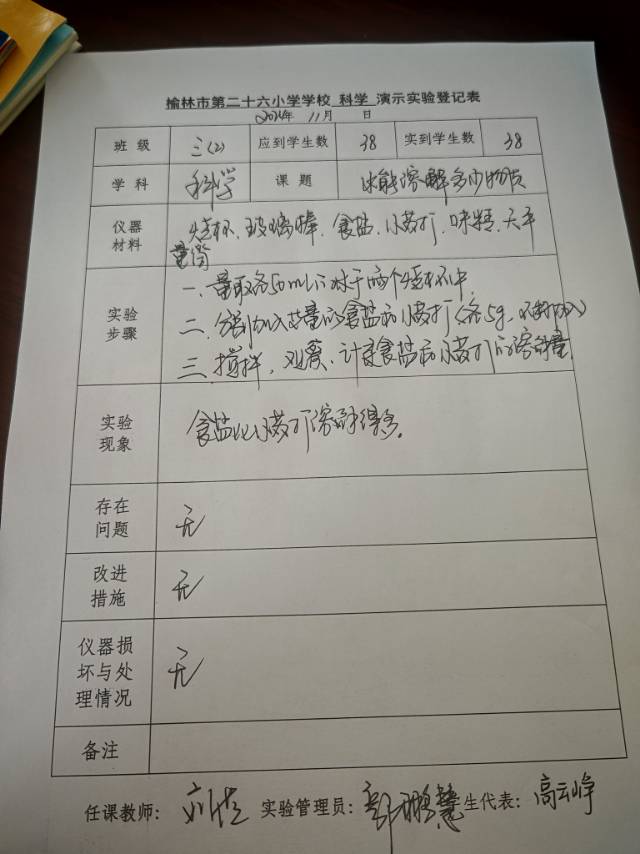 榆林市第二十六小学学校 科学 演示实验登记表
2024年 11月 日
班级 三(2) 应到学生数 38 实到学生数 38
学科 科学 课题 水能溶解多少物质
仪器材料 烧杯、玻璃棒、食盐、小苏打、味精、天平
量筒
实验步骤 一、量取各50ml水于两个烧杯中
二、分别加入等量的食盐和小苏打(各5g,不断加入)
三、搅拌,观察、记录食盐和小苏打的溶解量
实验现象 食盐比小苏打溶解得多。
存在问题 无
改进措施 无
仪器损坏与处理情况 无
备注
任课教师: 实验管理员: 鹏慧 生代表: 高云峥